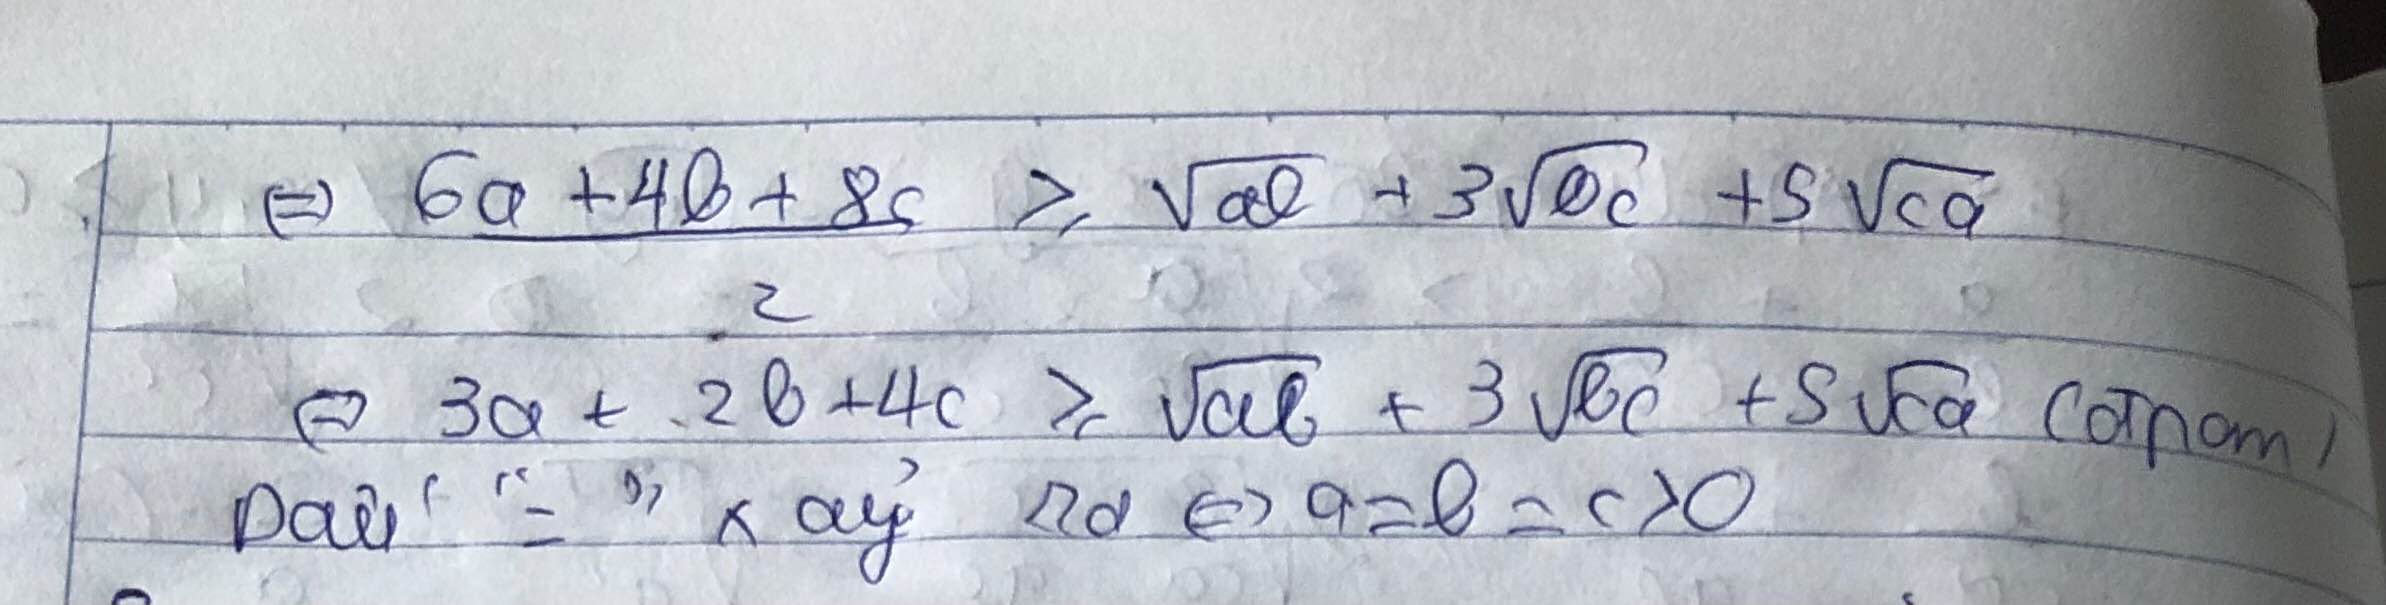 ⇔ 6a + 4b + 8c ≥ √ab + 3√bc + 5√ca
2
⇔ 3a + 2b + 4c ≥ √ab + 3√bc + 5√ca (đpcm)
Dấu "=" xảy ra ⇔ a = b = c > 0